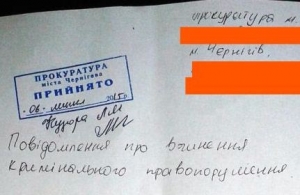 прокуратура м.
м. Чернігів.
ПРОКУРАТУРА
міста Чернігова
ПРИЙНЯТО
Повідомлення про вчинення
кримінального правопорушення.